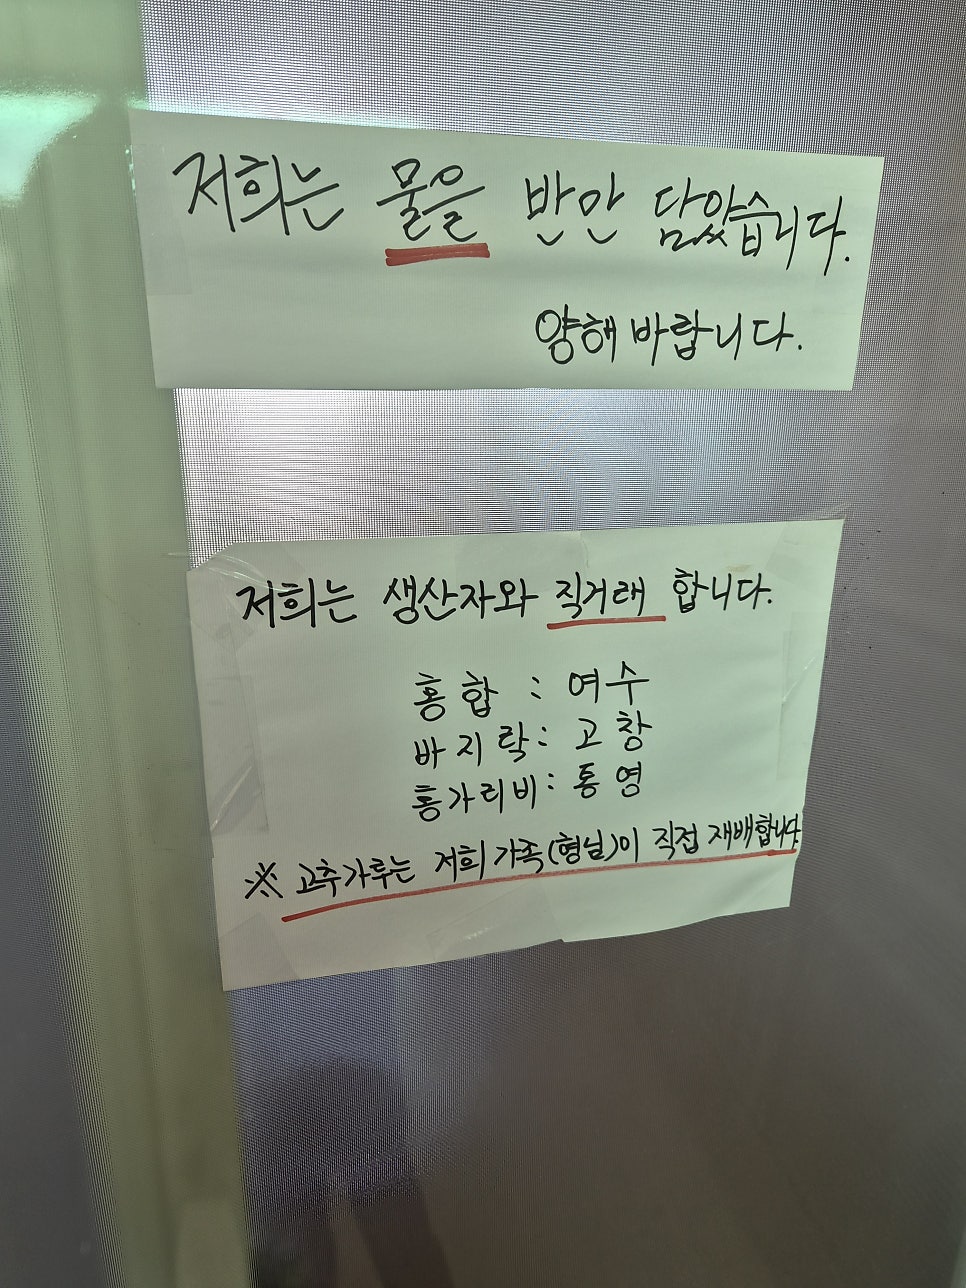 저희는 물을 반만 담았습니다.
양해바랍니다.
저희는 생산자와 직거래 합니다.
홍합 : 여수
바지락 : 고창
홍가리비 : 통영
※ 고추가루는 저희 가족(형님)이 직접 재배합니다